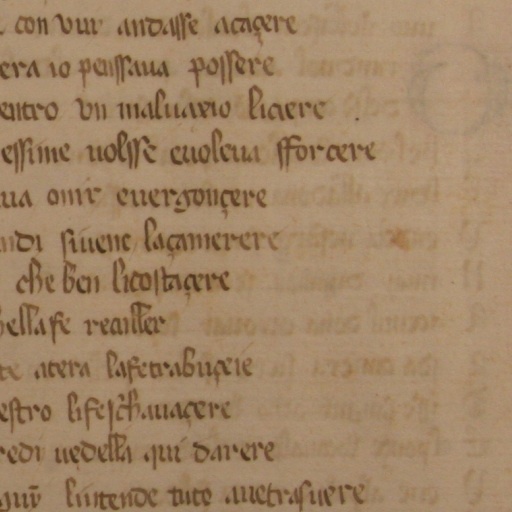 con vur andasse acaçere
era io penssaua possere
entro vn maluaxio liciere .
essime uolsse euoleua fforcere
ua onir euergonçere
ndi siuene laçamerere
che ben licostaçere
bella fe reculler
te atera lafetrabuçeie
estro lifeschauaçere
redi uedella qui darere
lintende tuto auetrasuere